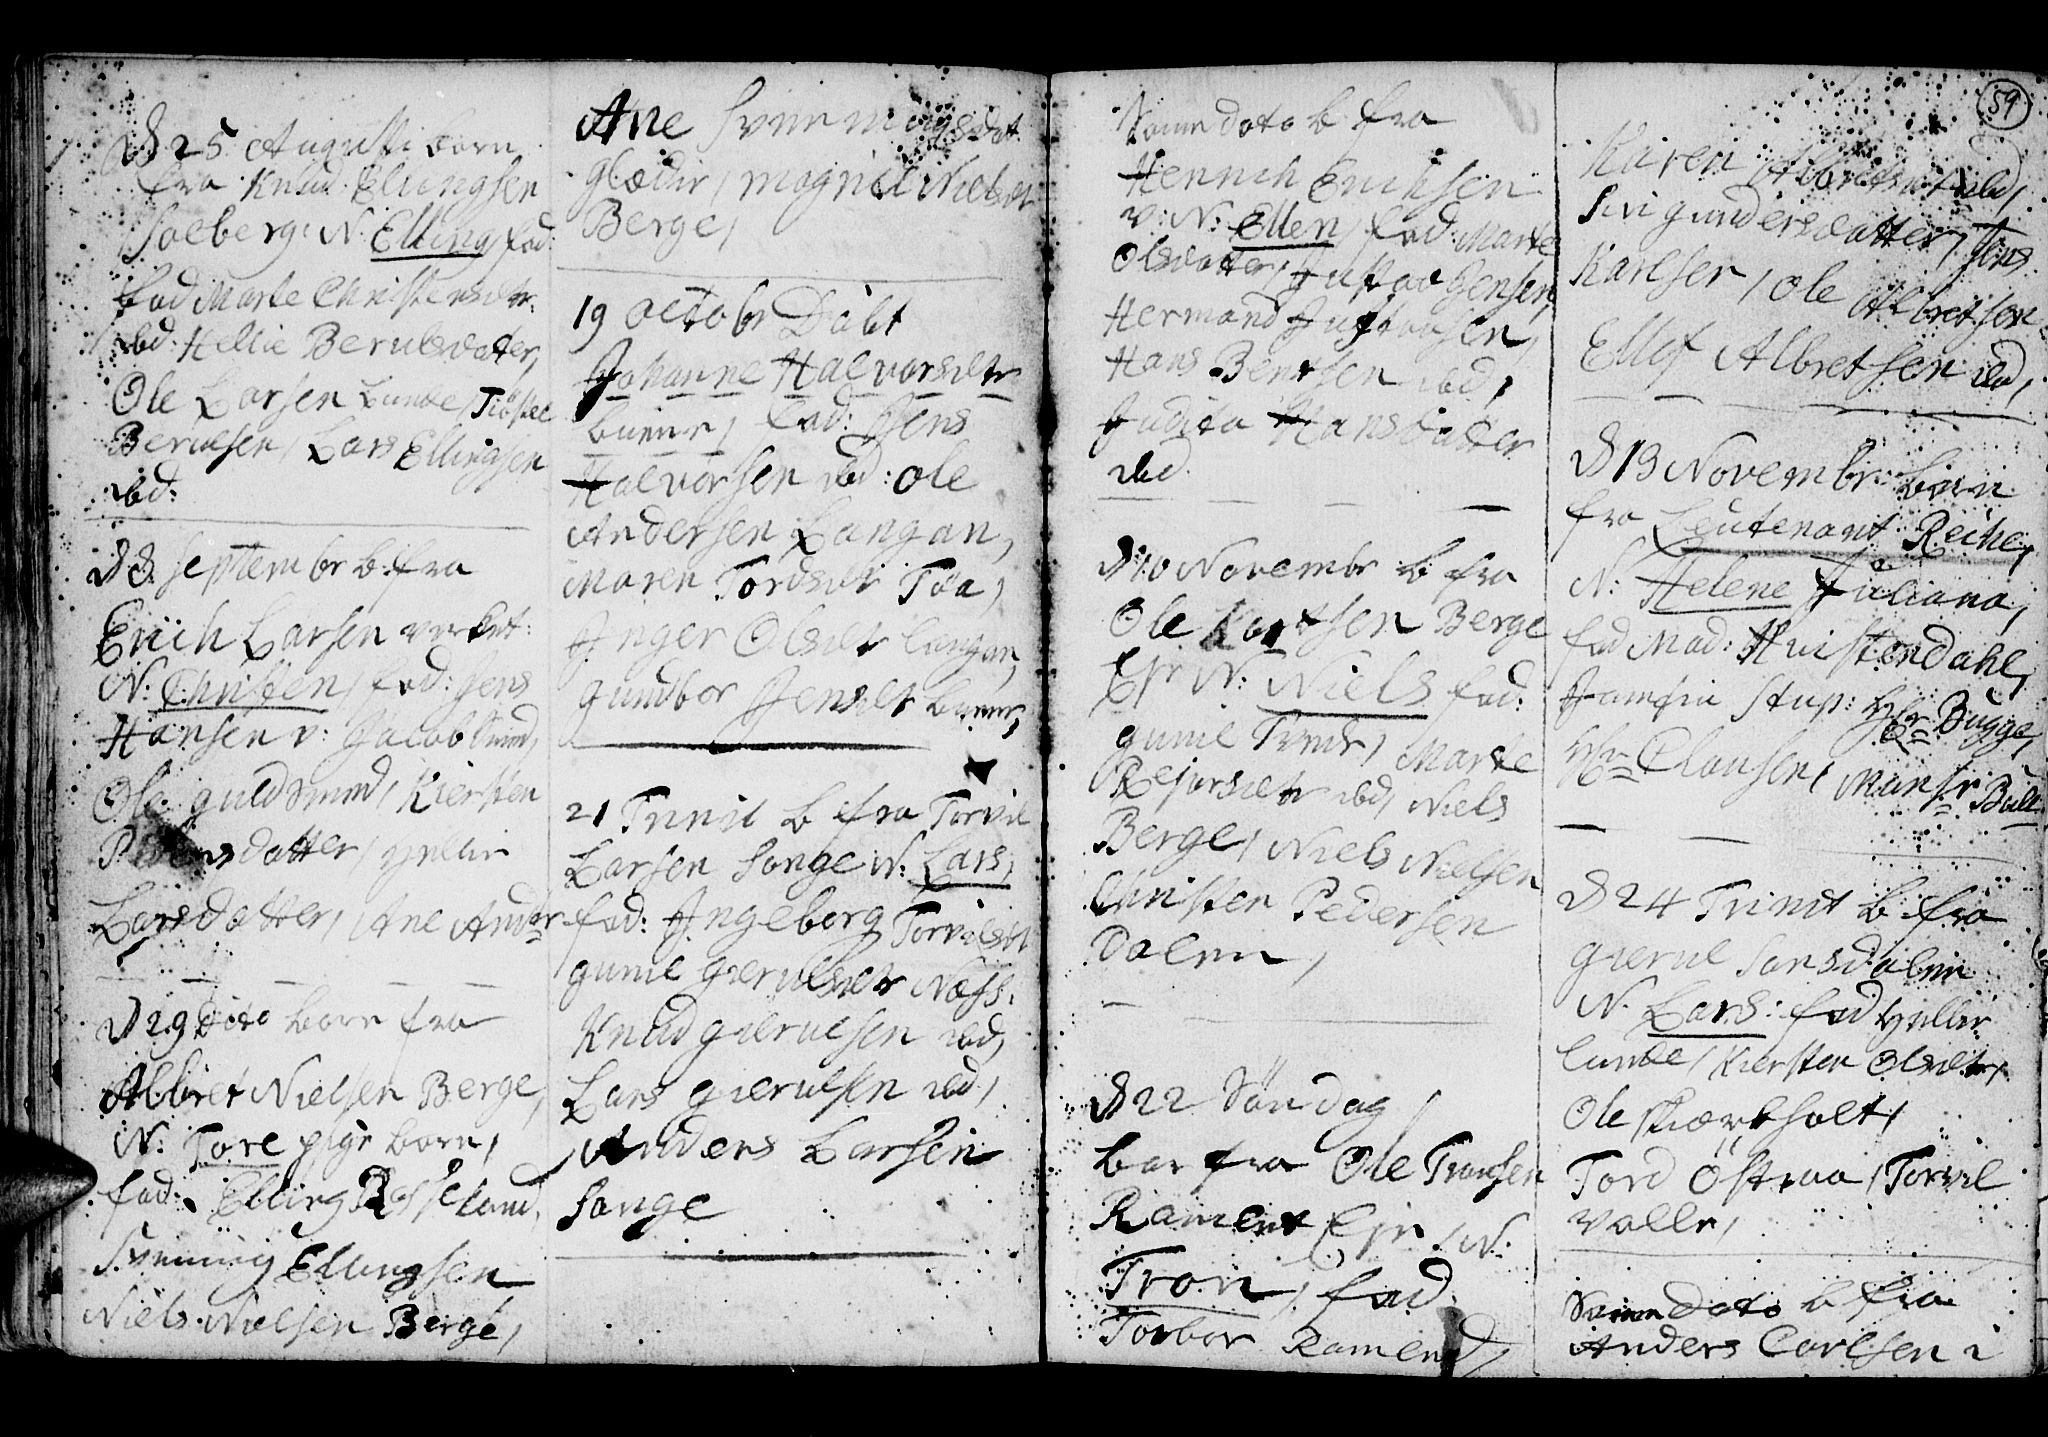 D 25 Augusti born
fra Knud Ellingsen
Solberg: N. Elling, fad:
fad Marte Christensdtr.
ibd: Hellie Berulsdater,
Ole Larsen Lunde, Tiøstel
Berulsen, Lars Ellingsen
ibd:
D 8 Septembr b. fra
Erich Larsen verket:
N: Christen, fad: Jens
Hansen v: Jacob Smed,
Ole guldsmed, Kiersten
datter,
Larsdatter, Ane Andr
D 29 Dito born fra
Albret Nielsen Berge,
N: Tore pige born,
fad: Elling land,
Svennig Ellingsen
Niels Nielsen Berge,
Ane Svennningsdat
Glødir, Magnil Nielsdt
Berge,
19 Octobr Døbt
Johanne Halvorsdtr
buene, fad: Jens
Halvorsen ibd: Ole
Andersen Langan,
Maren Tordsdtr Töa,
Inger Olsdtr langan,
gundbor Jensdt buene,
21 Trinit b fra Torvil
Larsen Songe N: Lars,
fad: Ingeborg Torvilsdt
gunil gierulsdtr Næss.
Knud gierulsen ibd,
Lars gierulsen ibd,
Anders Larsen
Songe
Same dato b fra
Hennich Erichsen
v: N: Ellen, fad: Marte
Olsdatter, Justaa Jensen,
Hermand Justaasen,
Hans Bentsen ibd,
Judita Hansdatter
ibd
D 10 Novembr b fra
Ole Berge
Eje N: Niels fad:
gunil Marte
Rejorsdtr ibd, Niels
Berge, Niels Nielsen
Christen Pedersen
Dalen,
D 22 Søndag
bor fra Ole Tronsen
Rament Eje, N:
Tron, fad
Torbor Ramend,
59
Karen Albretsdt ibd,
Siri gundersdatter, Jens
Karlsen, Ole Albretsen
Ellef Albretsen ibd,
D 13 Novembr: born
fra Leutenant Reihe,
N: Helene Juliana,
fad Mad: Huistendahl,
Jomfru Stup: Hr Bugge,
Hr Clausen, Munsr Bull
D 24 Trinit b fra
gierul Sonsdalen
N. Lars: fad
lunde, Kiersten Olsdtr,
Ole Skiærkholt,
Tord Östraa, Torvil
valle,
Same Dato b fra
Anders Carlsen i